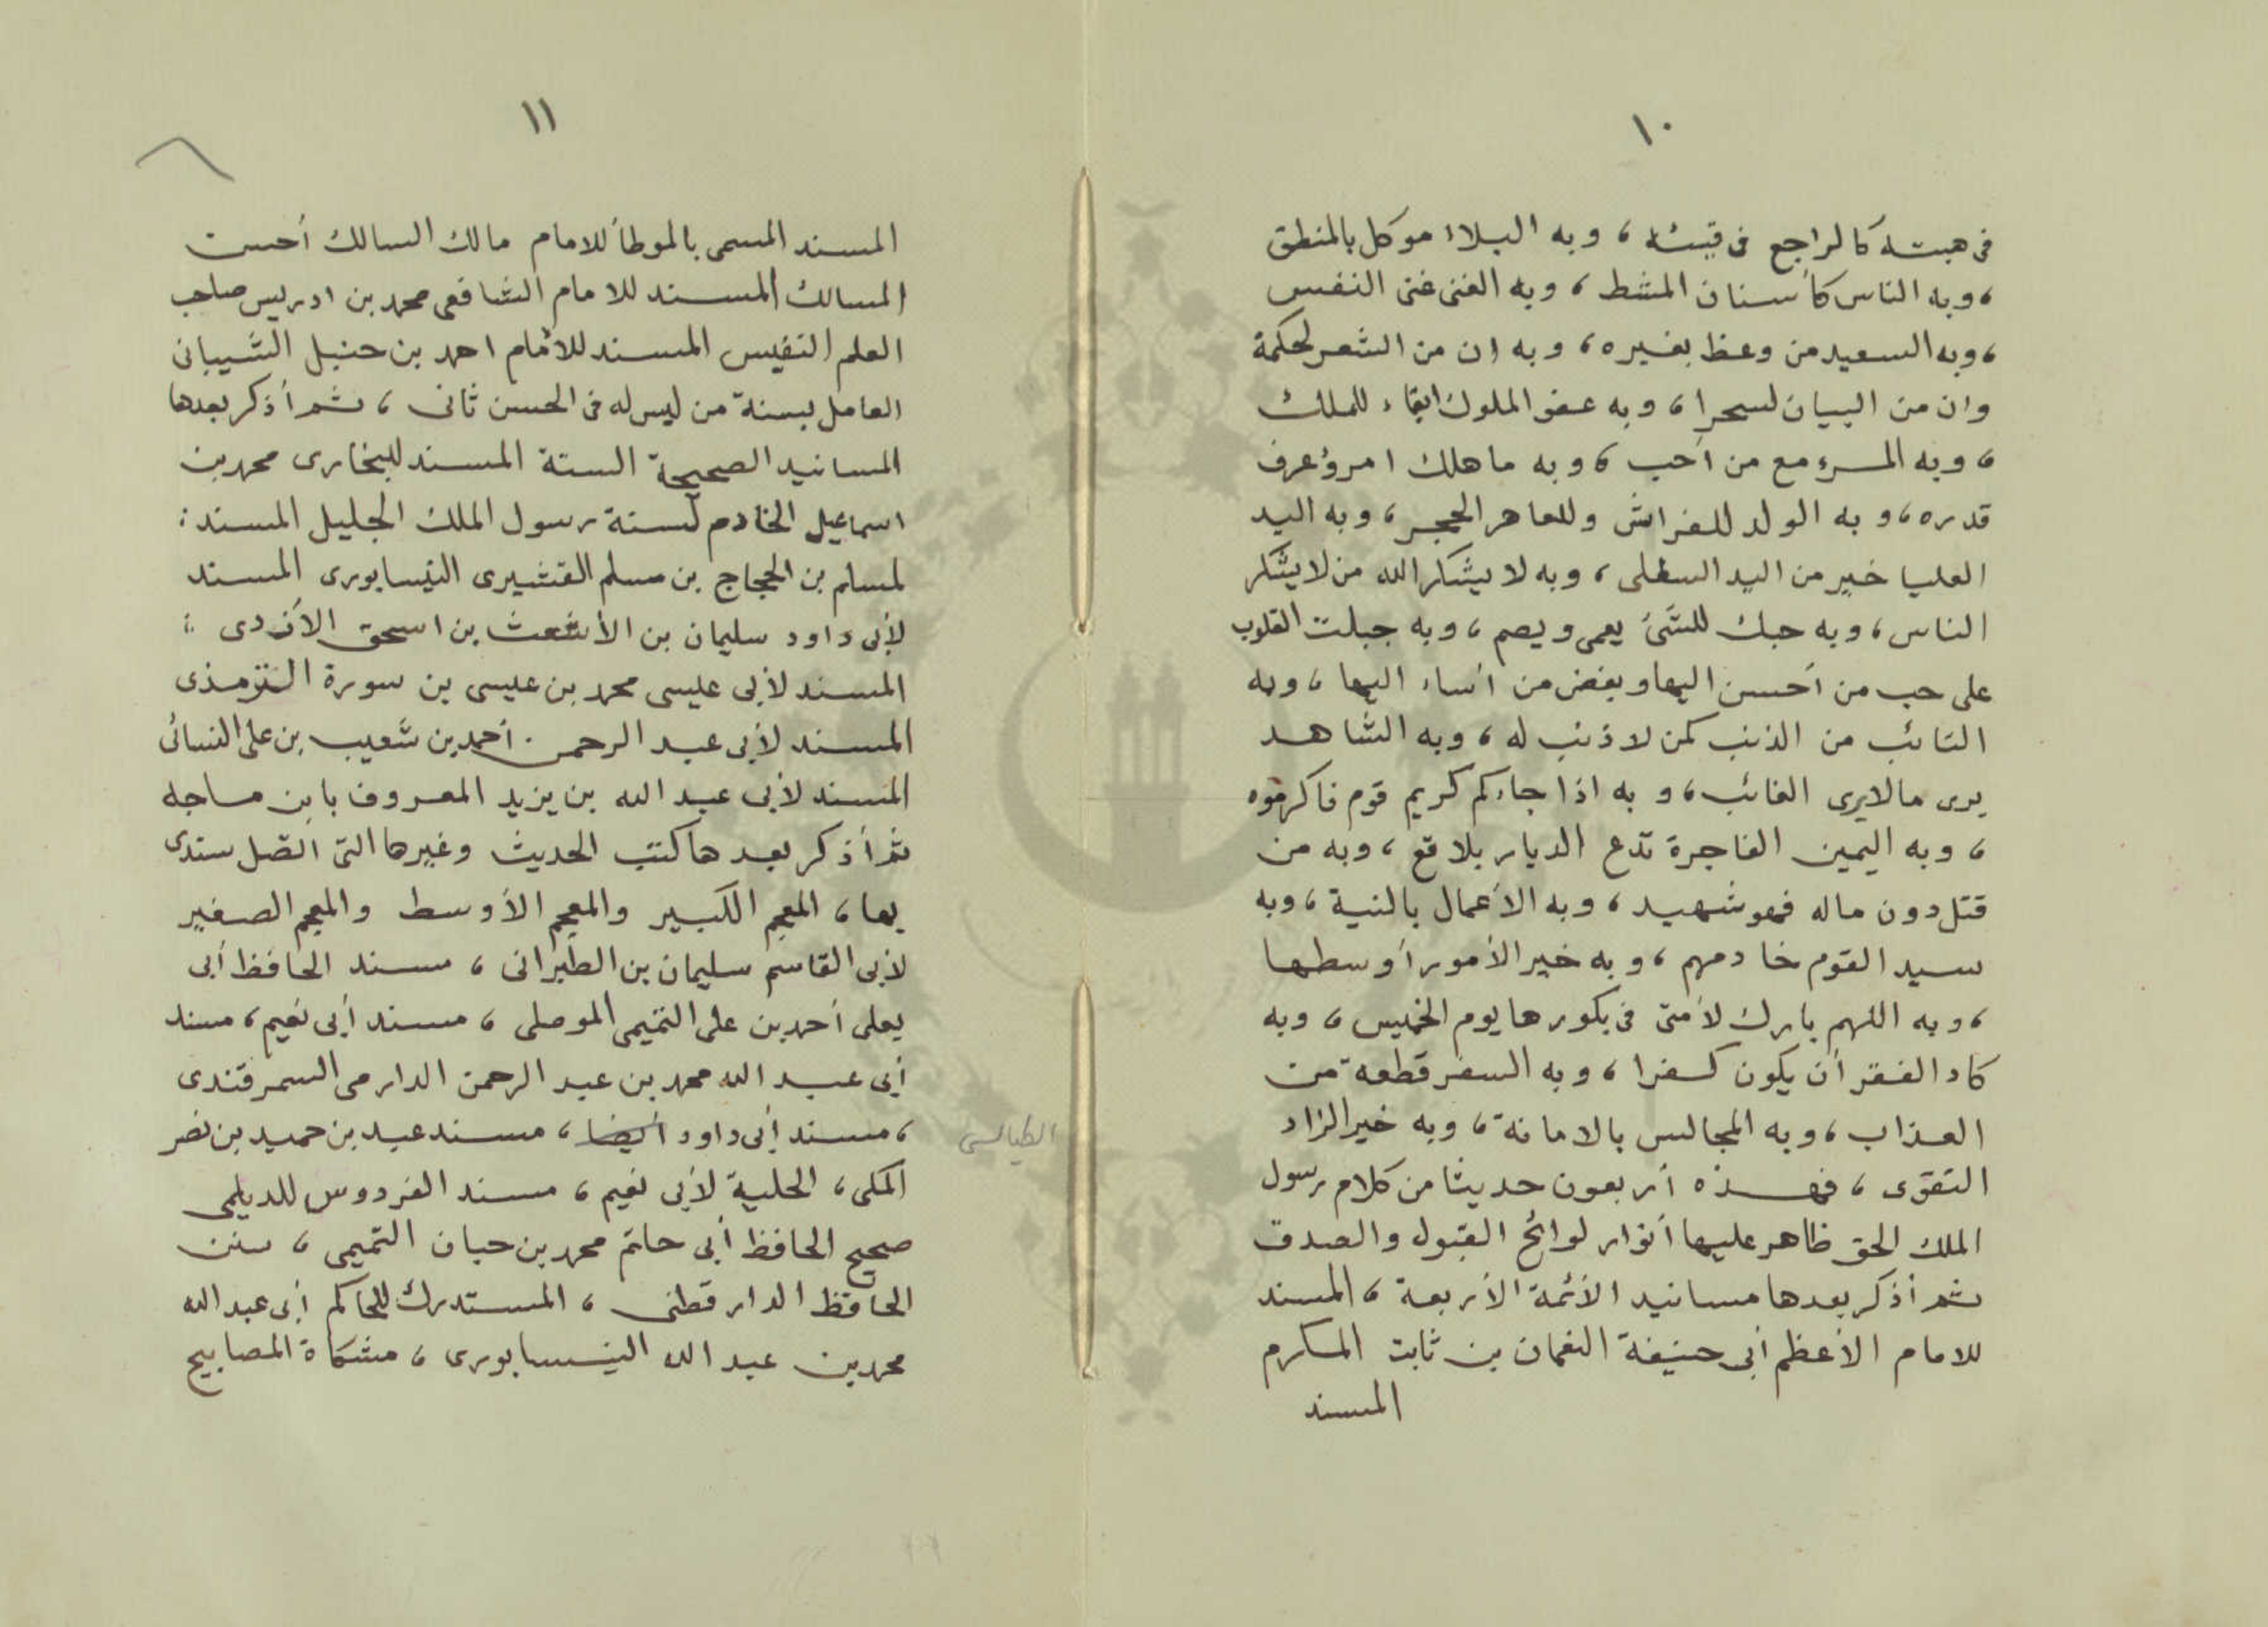 ١٠
فى هبته كالراجع فى قيئه ، وبه البلاء موكل بالمنطق
، وبه الناس كأسنان المشط ، وبه الغنى غنى النفس
، وبه السعيد من وعظ بغيره ، وبه ان من الشعر لحكمة
وان من البيان لسحرا ، وبه عفو الملوك ابقاء للملك
، وبه المرء مع من أحب ، وبه ما هلك امرؤ عرف
قدره ، وبه الولد للفراش وللعاهر الحجر ، وبه اليد
العليا خير من اليد السفلى ، وبه لا يشكر الله من لا يشكر
الناس ، وبه حبك للشئ يعمى ويصم ، وبه جبلت القلوب
على حب من أحسن اليها وبغض من أساء اليها ، وبه
التائب من الذنب كمن لا ذنب له ، وبه الشاهد
يرى مالا يرى الغائب ، وبه اذا جاءكم كريم قوم فاكرموه
، وبه اليمين الفاجرة تدع الديار بلاقع ، وبه من
قتل دون ماله فهو شهيد ، وبه الأعمال بالنية ، وبه
سيد القوم خادمهم ، وبه خير الأمور أوسطها
، وبه اللهم بارك لأمتى فى بكورها يوم الخميس ، وبه
كاد الفقر أن يكون كفرا ، وبه السفر قطعة من
العذاب ، وبه المجالس بالامانة ، وبه خير الزاد
التقوى ، فهذه أربعون حديثا من كلام رسول
الملك الحق ظاهر عليها أنوار لوائح القبول والصدق
ثم أذكر بعدها مسانيد الأئمة الأربعة ، المسند
للامام الأعظم أبى حنيفة النعمان بن ثابت المكرم
المسند
١١
المسند المسمى بالموطأ للامام مالك السالك أحسن
المسالك المسند للامام الشافعى محمد بن ادريس صاحب
العلم النفيس المسند للأمام احمد بن حنبل الشيبانى
العامل بسنة من ليس له فى الحسن ثانى ، ثم أذكر بعدها
المسانيد الصحيحة الستة المسند للبخارى محمد بن
اسماعيل الخادم لسنة رسول الملك الجليل المسند :
لمسلم بن الحجاج بن مسلم القشيرى النيسابورى المسند
لأبى داود سليمان بن الأشعث بن اسحق الأزدى :
المسند لأبى عليسى محمد بن عيسى بن سورة الترمذى
المسند لأبى عبد الرحمن . أحمد بن شعيب بن على النسائى
المسند لأبى عبد الله بن يزيد المعروف بابن ماجه
ثم أذكر بعدها كتب الحديث وغيرها التى اتصل سندى
بها ، المعجم الكبير والمعجم الأوسط والمعجم الصغير
لأبى القاسم سليمان بن الطبرانى ، مسند الحافظ أبى
يعلى أحمد بن على التميمى الموصلى ، مسند أبى نعيم ، مسند
أبى عبد الله محمد بن عبد الرحمن الدارمى السمرقندى
، مسند أبى داود أيضا ، مسند عبد بن حميد بن نصر
الطيالسى
المكى ، الحلية لأبى نعيم ، مسند الفردوس للديلمى
صحيح الحافظ أبى حاتم محمد بن حبان التميمى ، سنن
الحافظ الدارقطنى ، المستدرك للحاكم أبى عبد الله
محمد بن عبد الله النيسابورى ، مشكاة المصابيح